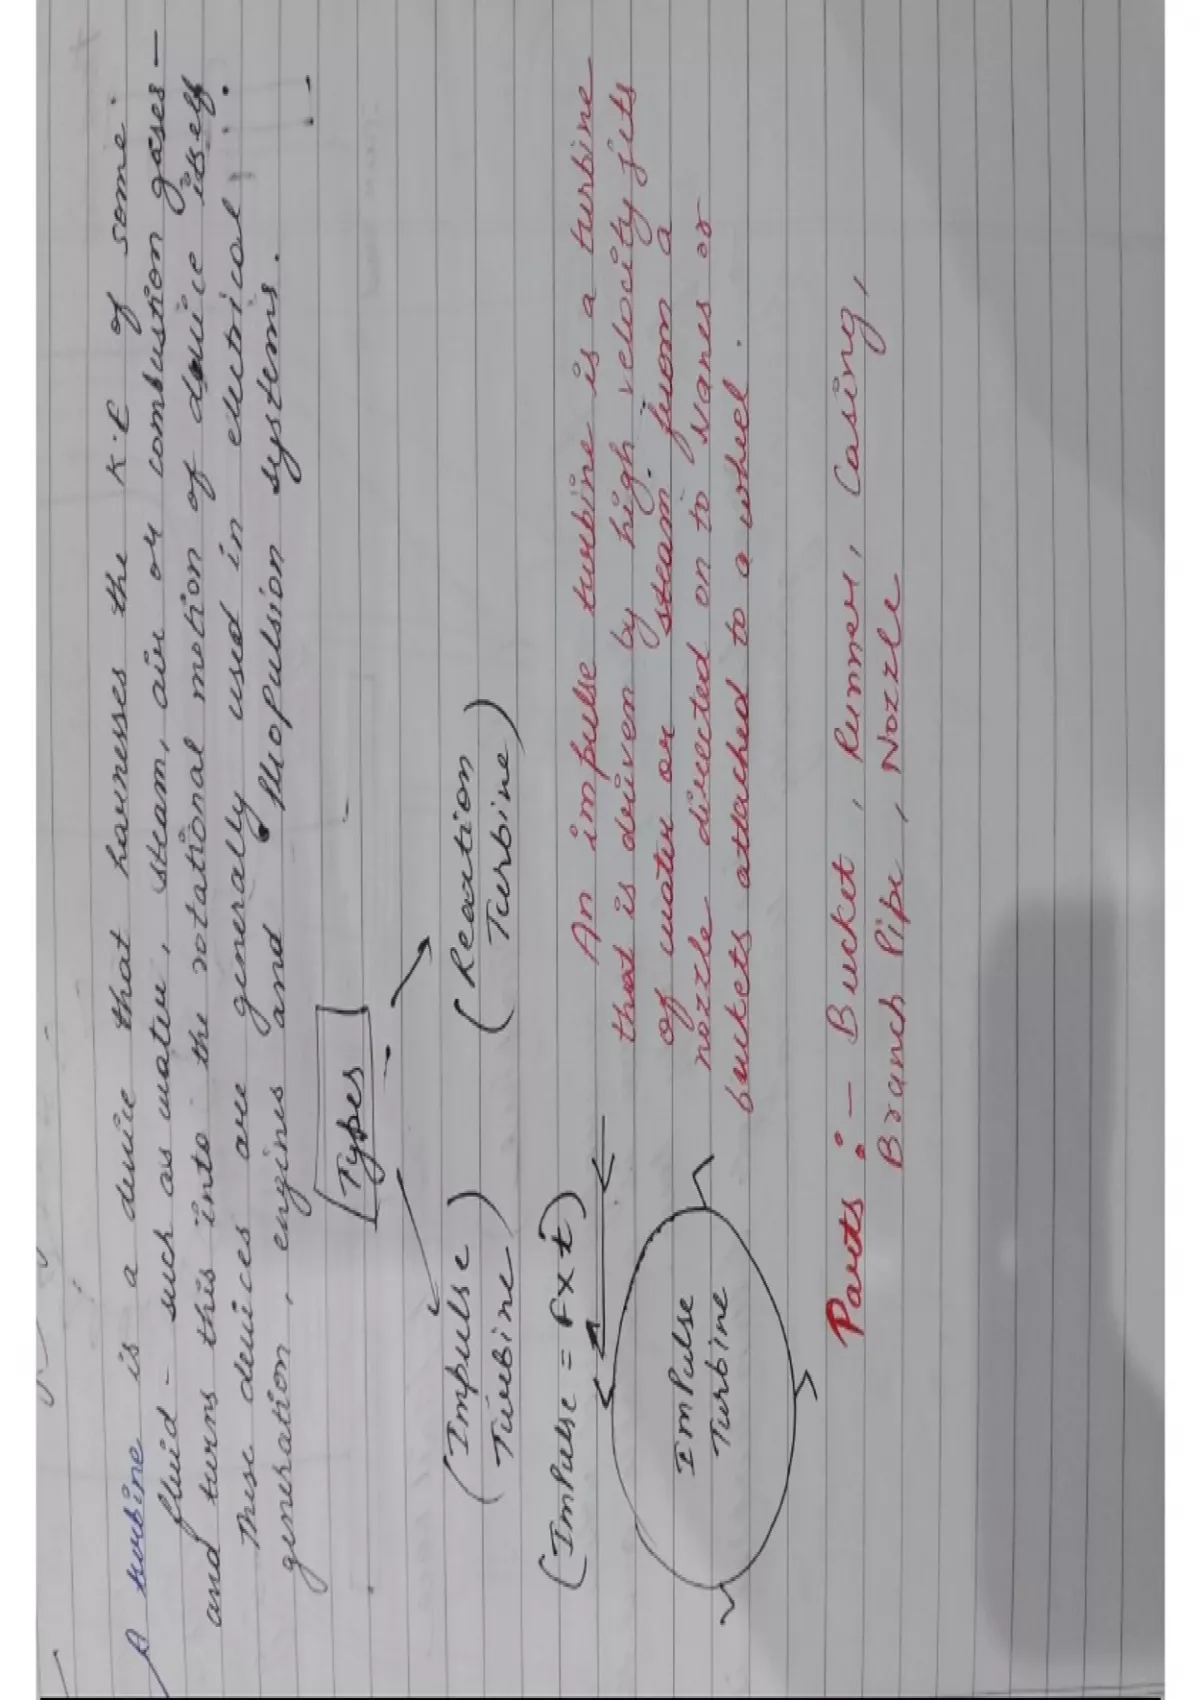 A turbine is a device that harnesses the K.E of some
fluid - such as water, steam, air or combustion gases -
and turns this into the rotational motion of device itself.
These devices are generally used in electrical
generation, engines and propulsion systems.
[Types]
(Impulse Turbine)
(Reaction Turbine)
(Impulse = F x t)
Impulse
Turbine
An impulse turbine is a turbine
that is driven by high velocity jets
of water or steam from a
nozzle directed on to vanes or
buckets attached to a wheel.
Parts :- Bucket, Runner, Casing,
Branch Pipe, Nozzle